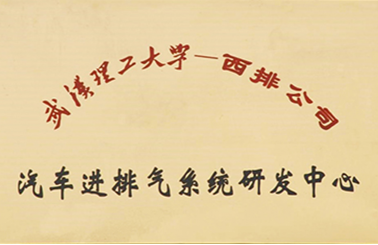 武漢理工大学—西排公司
汽车进排气系统研发中心